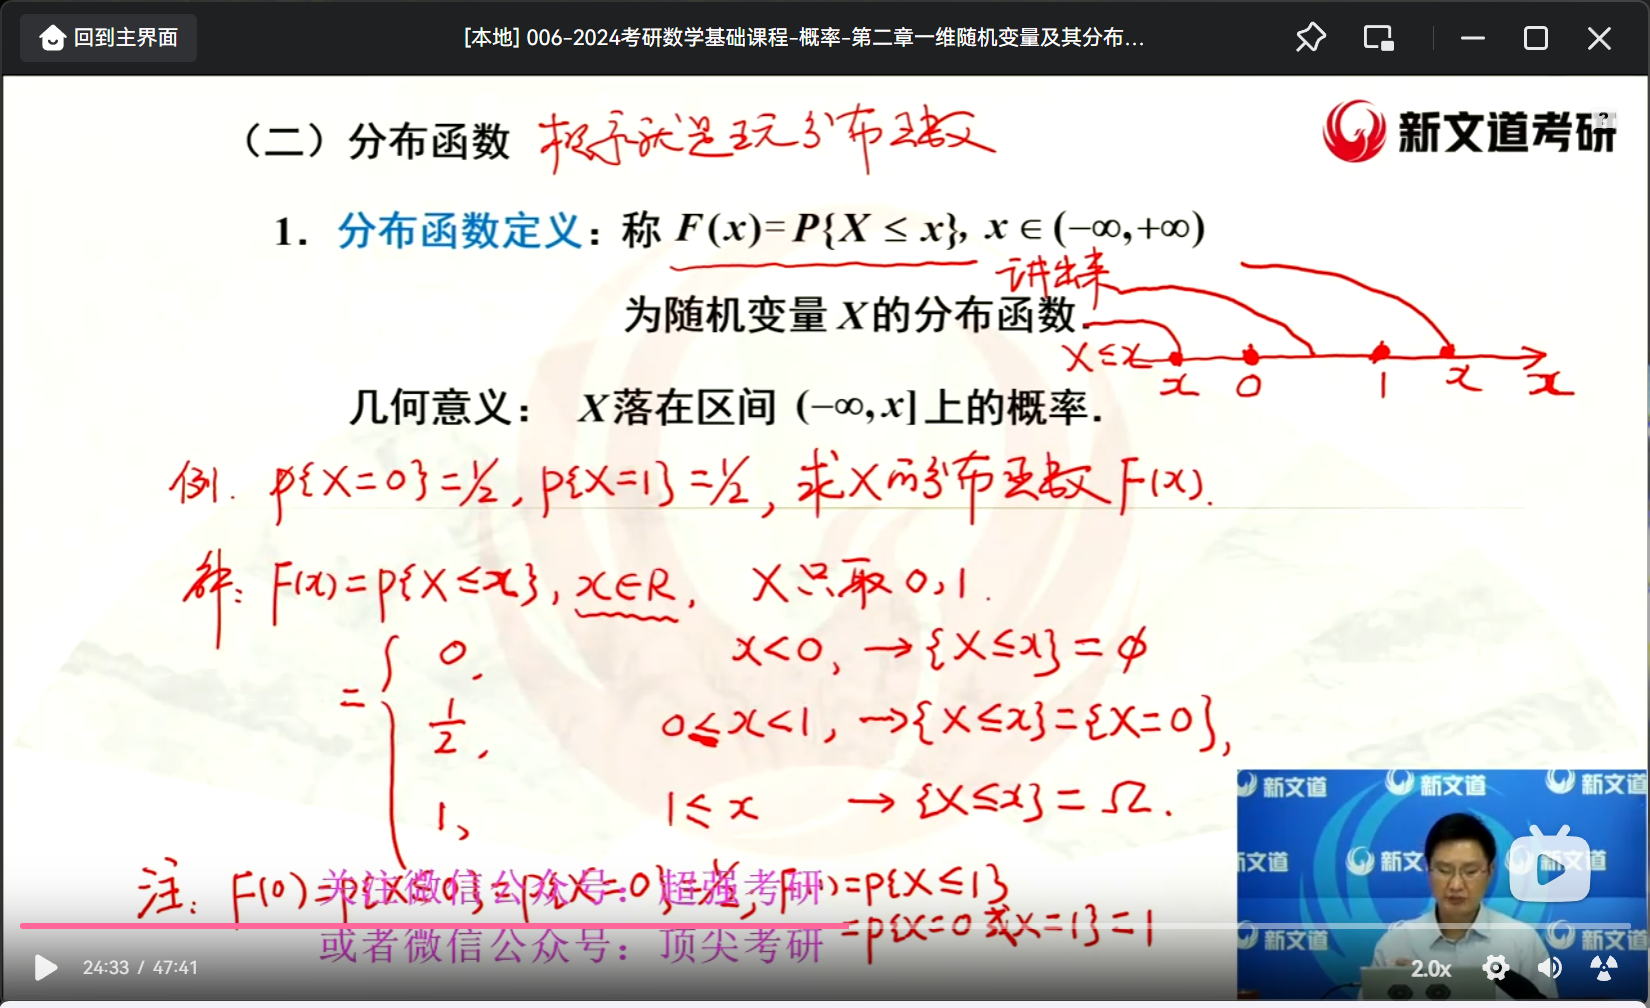 回到主界面
[本地] 006-2024考研数学基础课程-概率-第二章一维随机变量及其分布...
(二) 分布函数 概率就是玩分布函数
新文道考研
1. 分布函数定义: 称 F(x)=P{X ≤ x}, x∈(−∞,+∞)
讲出来
为随机变量 X 的分布函数.
X≤x x 0 1 x x
几何意义: X 落在区间 (−∞, x] 上的概率.
例. P{X=0}=1/2, P{X=1}=1/2, 求X的分布函数F(x).
解: F(x)=P{X≤x}, x∈R, X只取0,1.
= { 0, x<0, → {X≤x}=ϕ
1/2, 0≤x<1, → {X≤x}={X=0},
1, 1≤x → {X≤x}=Ω.
注: F(0)=P{X≤0}=P{X=0}=1/2, F(1)=P{X≤1}
=P{X=0或X=1}=1
关注微信公众号: 超强考研
或者微信公众号: 顶尖考研
新文道 新文道 新文道
新文道 新文道 新文道
新文道 新文道
24:33 / 47:41
2.0x